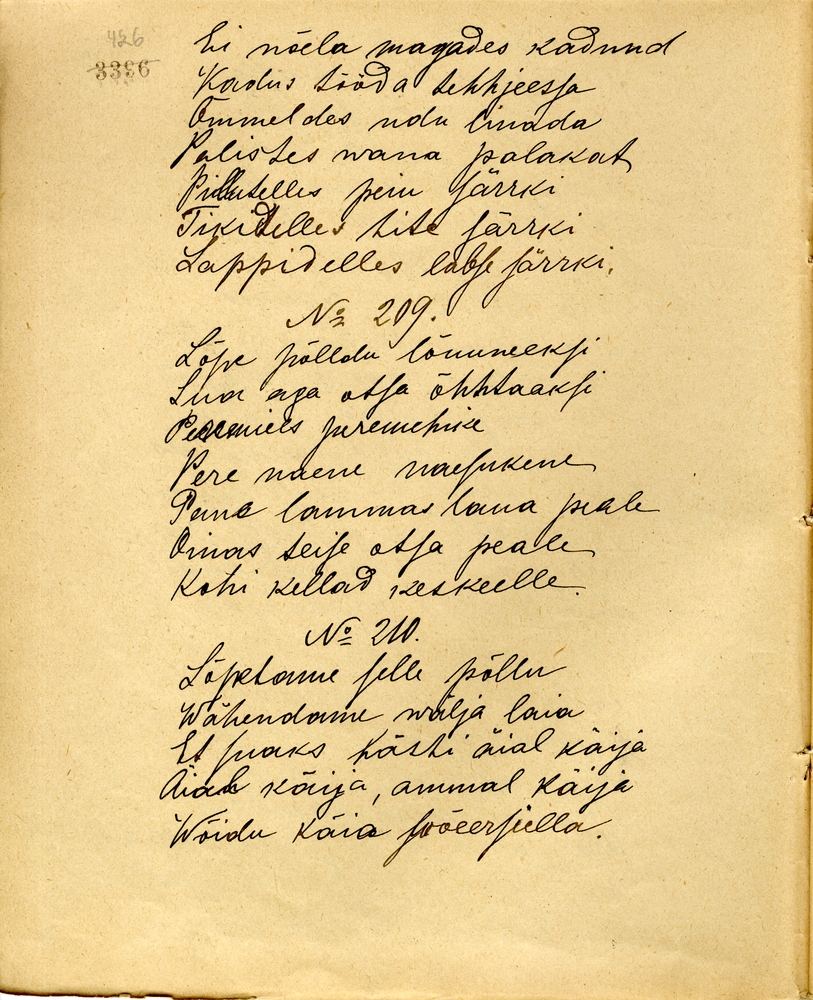 426
3396
Ei nõela magades kadund
Kadus tööda tehhjeessa
Ommeldes udu linada
Palistes wana palakat
Pillutelles peiu särrki
Tikidelles tite särrki
Lappidelles labse särrki.
№ 209.
Lõpe põlldu lõuuneeksi
Saa aga otsa õhhtaaksi
Peremees peremehike
Pere naene naesukene
Pane lammas laua peale
Oinas teise otsa peale
Kohi kellad keskeelle.
№ 210.
Lõpetame selle põllu
Wähendame wälja laia
Et saaks hästi äial käija
Äial käija, ammal käija
Wõidu käia